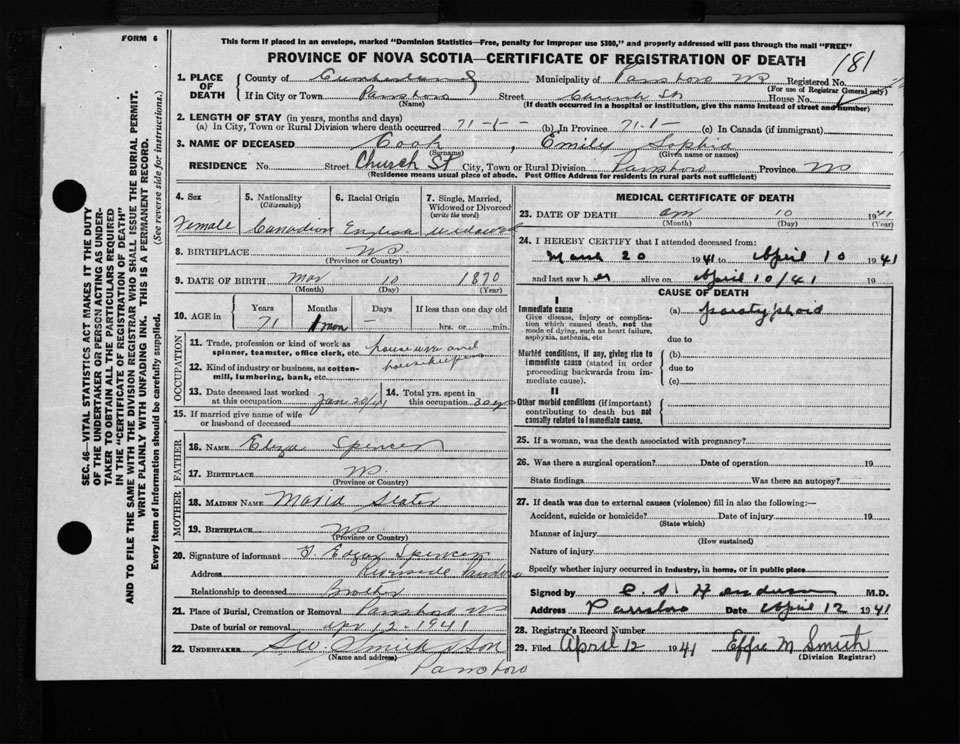 FORM 6
This form if placed in an envelope, marked "Dominion Statistics—Free, penalty for improper use $300," and properly addressed will pass through the mail "FREE"
PROVINCE OF NOVA SCOTIA—CERTIFICATE OF REGISTRATION OF DEATH
181
1. PLACE OF DEATH
County of Cumberland Municipality of Parrsboro NS Registered No.
(For use of Registrar General only)
If in City or Town Parrsboro Street Church St House No.
(Name) (If death occurred in a hospital or institution, give the name instead of street and number)
2. LENGTH OF STAY (in years, months and days)
(a) In City, Town or Rural Division where death occurred 71-1-- (b) In Province 71-1- (c) In Canada (if immigrant)
3. NAME OF DECEASED Cook, Emily Sophia
(Surname) (Given name or names)
RESIDENCE No. Street Church St City, Town or Rural Division Parrsboro Province NS
(Residence means usual place of abode. Post Office Address for residents in rural parts not sufficient)
4. Sex 5. Nationality (Citizenship) 6. Racial Origin 7. Single, Married, Widowed or Divorced (write the word)
Female Canadian English Widowed
8. BIRTHPLACE NS
(Province or Country)
9. DATE OF BIRTH Mar 10 1870
(Month) (Day) (Year)
10. AGE in Years Months Days If less than one day old
71 1 mon – hrs. or min.
OCCUPATION
11. Trade, profession or kind of work as spinner, teamster, office clerk, etc. housework and
12. Kind of industry or business, as cotton-mill, lumbering, bank, etc. housekeeper
13. Date deceased last worked at this occupation Jan 14. Total yrs. spent in this occupation
15. If married give name of wife or husband of deceased
FATHER
16. NAME Spencer
17. BIRTHPLACE NS
(Province or Country)
MOTHER
18. MAIDEN NAME Maria Slater
19. BIRTHPLACE NS
(Province or Country)
20. Signature of informant Edgar Spencer
Address Riverside Parrsboro
Relationship to deceased Brother
21. Place of Burial, Cremation or Removal Parrsboro NS
Date of burial or removal apr 12-1941
22. UNDERTAKER Smith & Son
(Name and address)
Parrsboro
MEDICAL CERTIFICATE OF DEATH
23. DATE OF DEATH 10 1941
(Month) (Day) (Year)
24. I HEREBY CERTIFY that I attended deceased from:
March 20 1941 to April 10 1941
and last saw her alive on April 10/41 19
CAUSE OF DEATH
I
Immediate cause
Give disease, injury or complication which caused death, not the mode of dying, such as heart failure, asphyxia, asthenia, etc
(a) paratyphoid
due to
Morbid conditions, if any, giving rise to immediate cause (stated in order proceeding backwards from immediate cause).
(b)
due to
(c)
II
Other morbid conditions (if important) contributing to death but not causally related to immediate cause.
25. If a woman, was the death associated with pregnancy?
26. Was there a surgical operation? Date of operation 19
State findings Was there an autopsy?
27. If death was due to external causes (violence) fill in also the following:—
Accident, suicide or homicide? Date of injury 19
(State which)
Manner of injury
(How sustained)
Nature of injury
Specify whether injury occurred in Industry, in home, or in public place
Signed by C. S. Henderson M.D.
Address Parrsboro Date April 12 1941
28. Registrar's Record Number
29. Filed April 12 1941 Effie M Smith
(Division Registrar)
SEC. 46—VITAL STATISTICS ACT MAKES IT THE DUTY
OF THE UNDERTAKER OR PERSON ACTING AS UNDER-
TAKER TO OBTAIN ALL THE PARTICULARS REQUIRED
IN THE "CERTIFICATE OF REGISTRATION OF DEATH"
AND TO FILE THE SAME WITH THE DIVISION REGISTRAR WHO SHALL ISSUE THE BURIAL PERMIT.
WRITE PLAINLY WITH UNFADING INK. THIS IS A PERMANENT RECORD.
Every item of information should be carefully supplied. (See reverse side for instructions.)